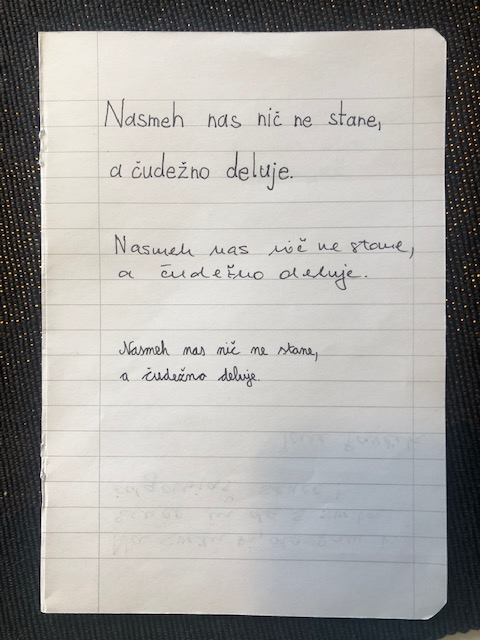 Nasmeh nas nič ne stane,
a čudežno deluje.
Nasmeh nas nič ne stane,
a čudežno deluje.
Nasmeh nas nič ne stane,
a čudežno deluje.